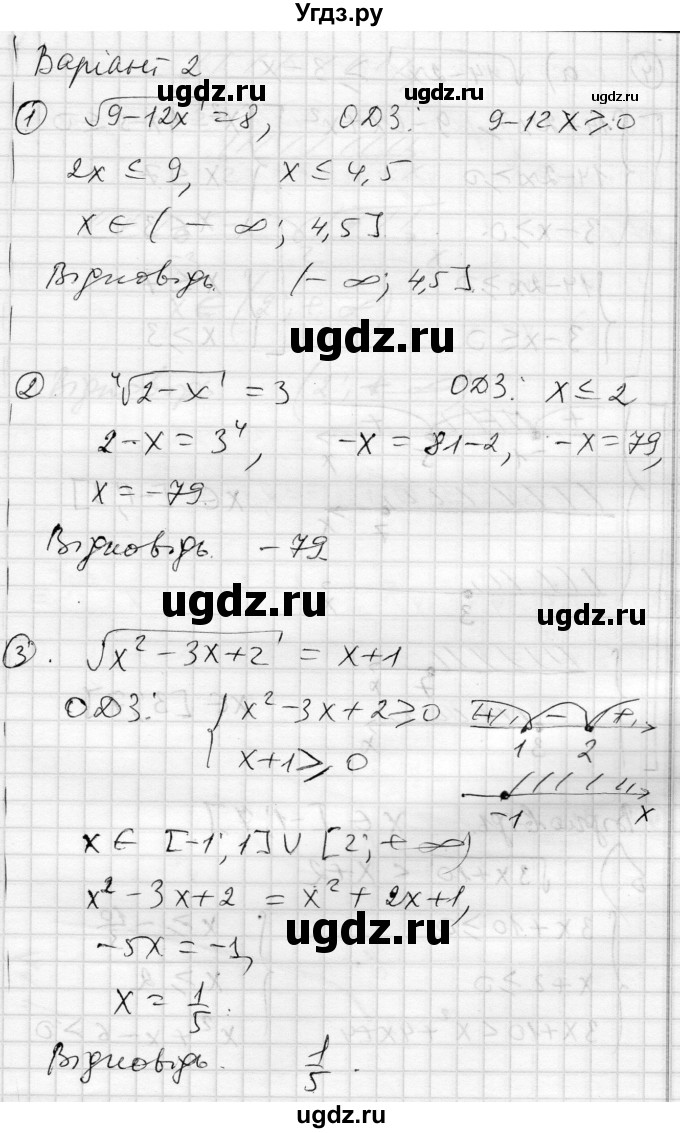 Угдз.ру
Варіант 2
ugdz.ru ugdz.ru ugdz.ru
① √9-12x = 8, ОДЗ: 9-12x ⩾ 0
2x ≤ 9, x ≤ 4,5
x ∈ (-∞; 4,5]
Відповідь. (-∞; 4,5].
ugdz.ru
② ⁴√2-x = 3 ОДЗ: x ≤ 2
2-x = 3⁴, -x = 81-2, -x = 79,
x = -79
Відповідь. -79
ugdz.ru ugdz.ru
③. √x²-3x+2 = x+1
ОДЗ: { x²-3x+2 ⩾ 0 + - +
x+1 ⩾ 0 1 2
-1 x
x ∈ [-1; 1] ∪ [2; +∞)
x²-3x+2 = x²+2x+1,
ugdz.ru
-5x = -1,
x = 1/5.
Відповідь. 1/5.
ugdz.ru